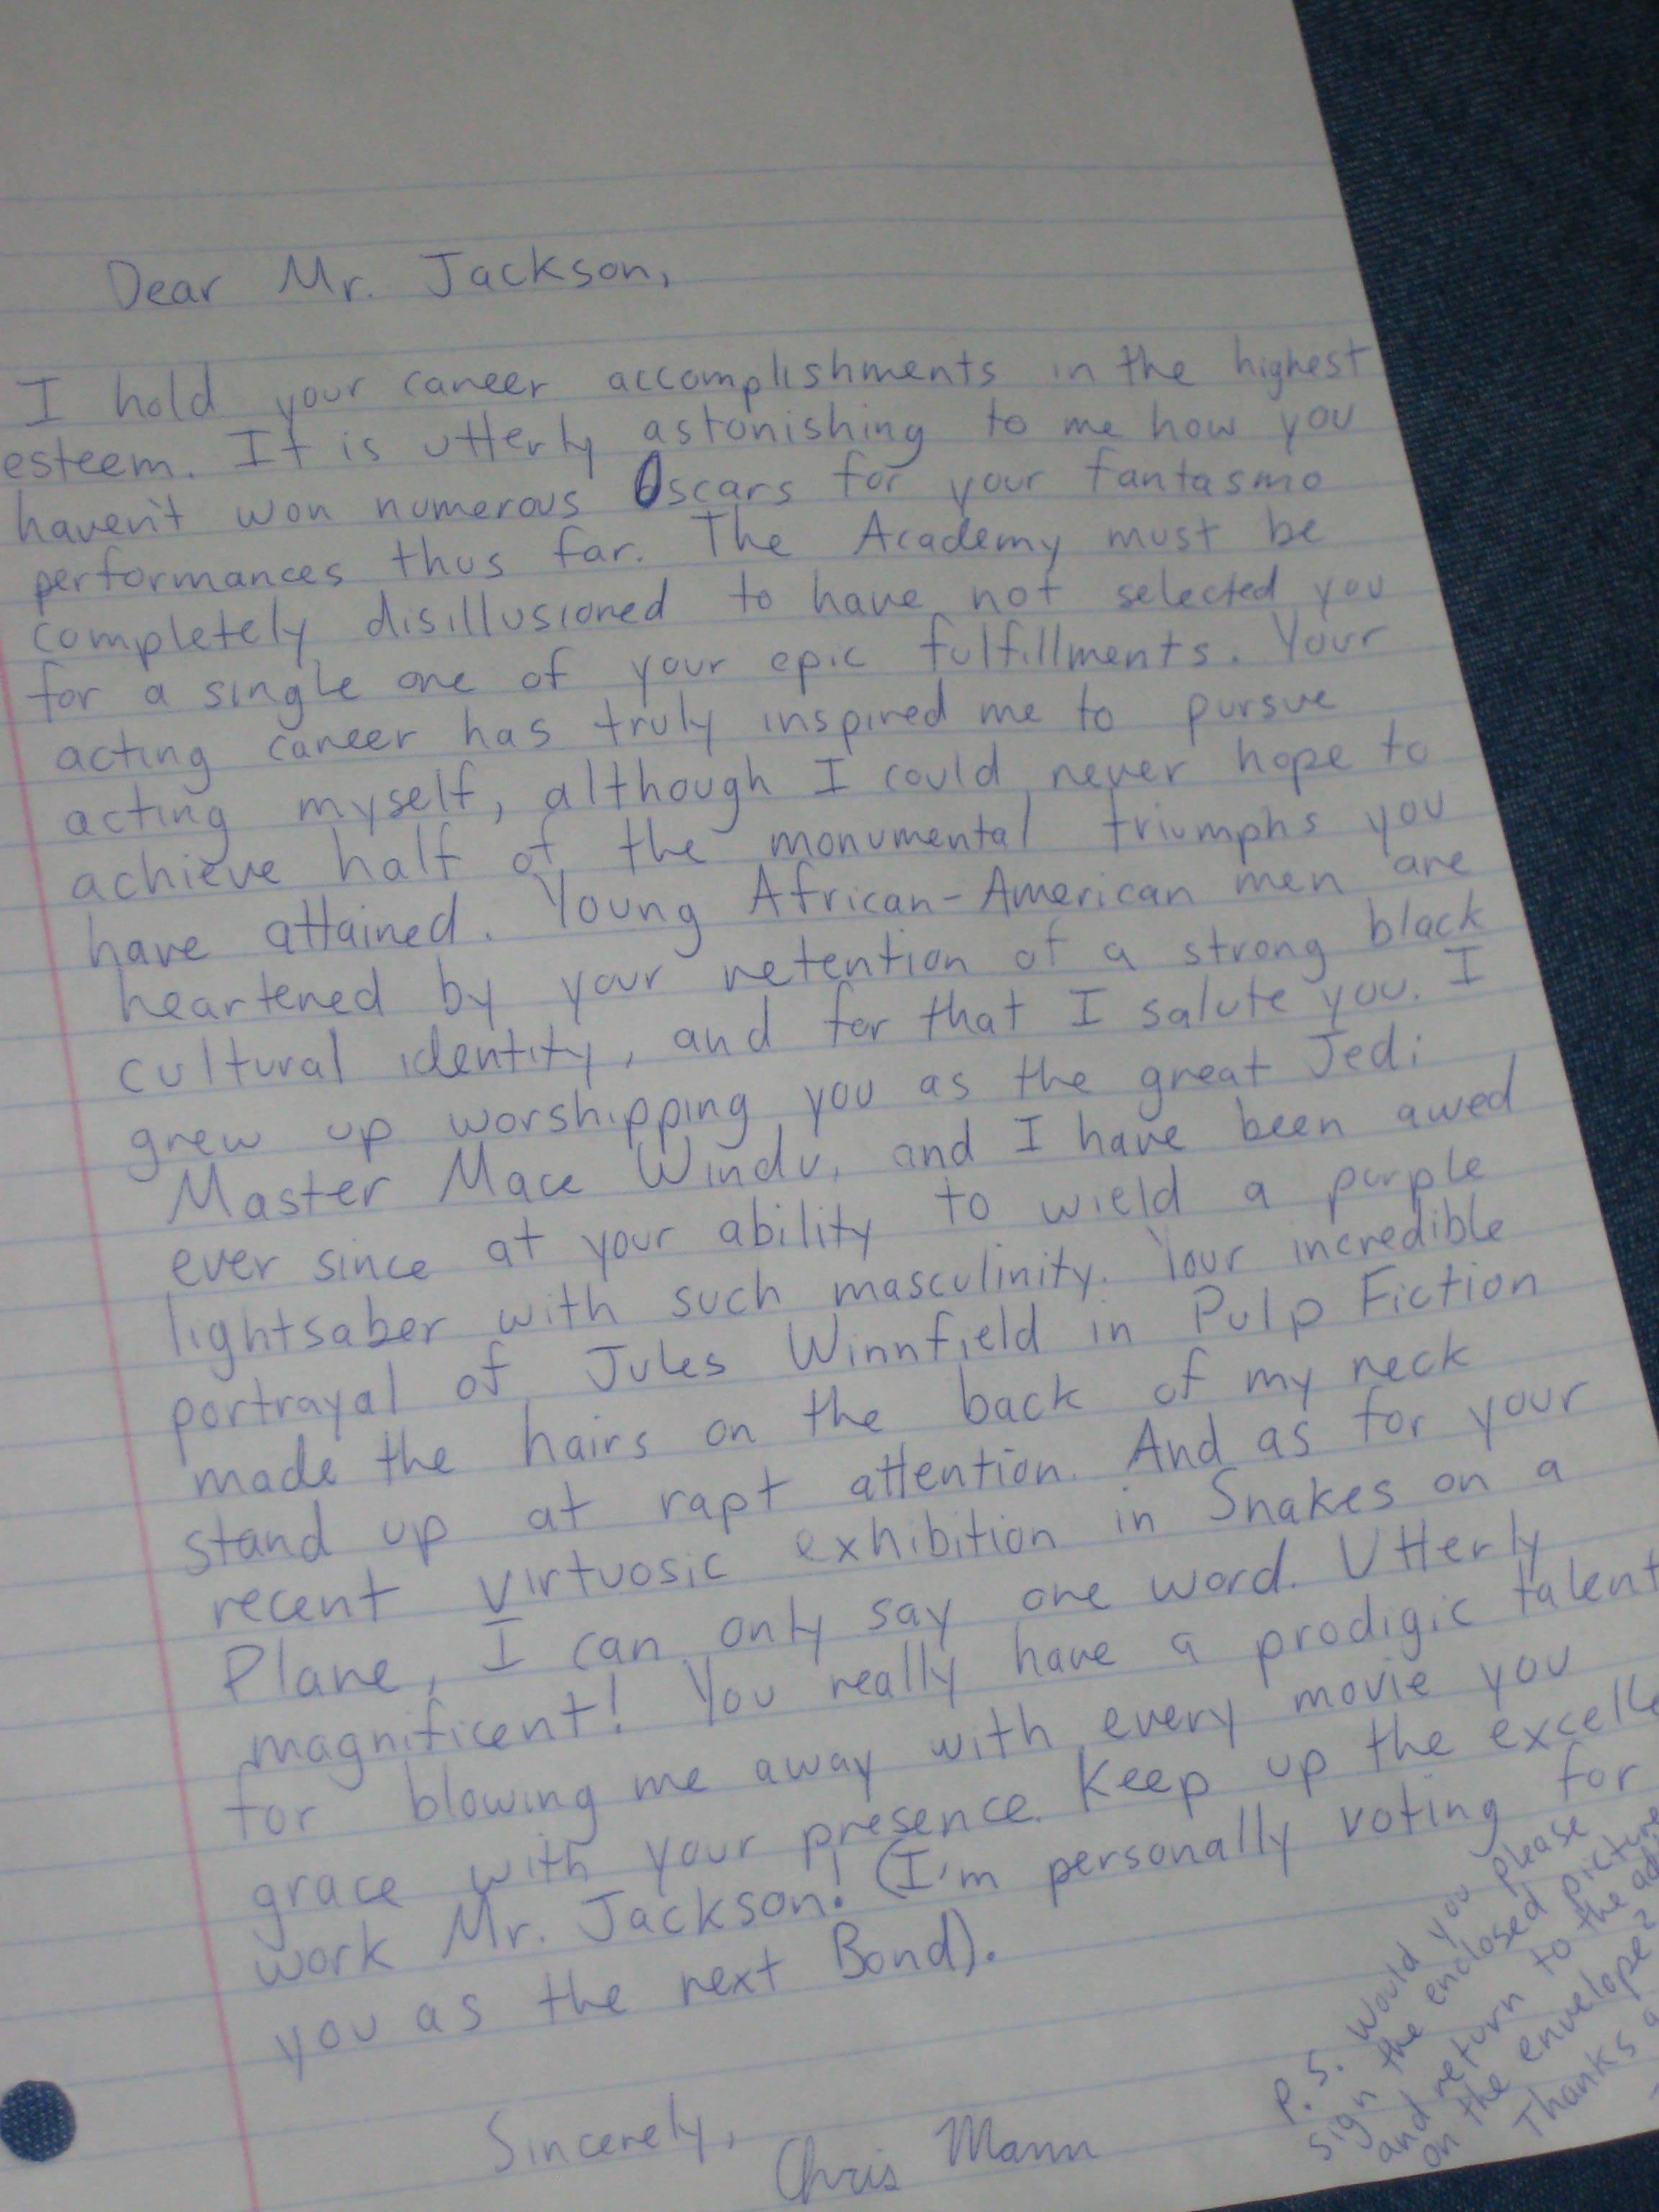 Dear Mr. Jackson,
I hold your career accomplishments in the highest
esteem. It is utterly astonishing to me how you
haven't won numerous Oscars for your fantasmo
performances thus far. The Academy must be
completely disillusioned to have not selected you
for a single one of your epic fulfillments. Your
acting career has truly inspired me to pursue
acting myself, although I could never hope to
achieve half of the monumental triumphs you
have attained. Young African-American men are
heartened by your retention of a strong black
cultural identity, and for that I salute you. I
grew up worshipping you as the great Jedi
Master Mace Windu, and I have been awed
ever since at your ability to wield a purple
lightsaber with such masculinity. Your incredible
portrayal of Jules Winnfield in Pulp Fiction
made the hairs on the back of my neck
stand up at rapt attention. And as for your
recent virtuosic exhibition in Snakes on a
Plane, I can only say one word. Utterly
magnificent! You really have a prodigic talent
for blowing me away with every movie you
grace with your presence. Keep up the
work Mr. Jackson! (I'm personally voting for
you as the next Bond).
Sincerely,
Chris Mann
P.S. Would you please
sign the enclosed picture
and return to the
on the envelope?
Thanks